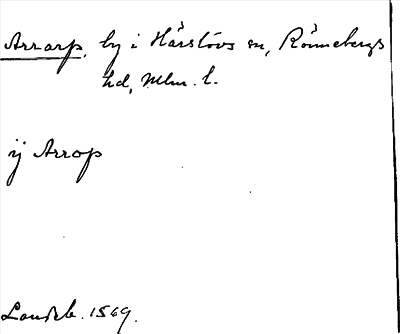 Arrarp, by i Härslövs sn, Rönnebergs
hd, Mlm. l.
ij Arrop
Landeb. 1569.